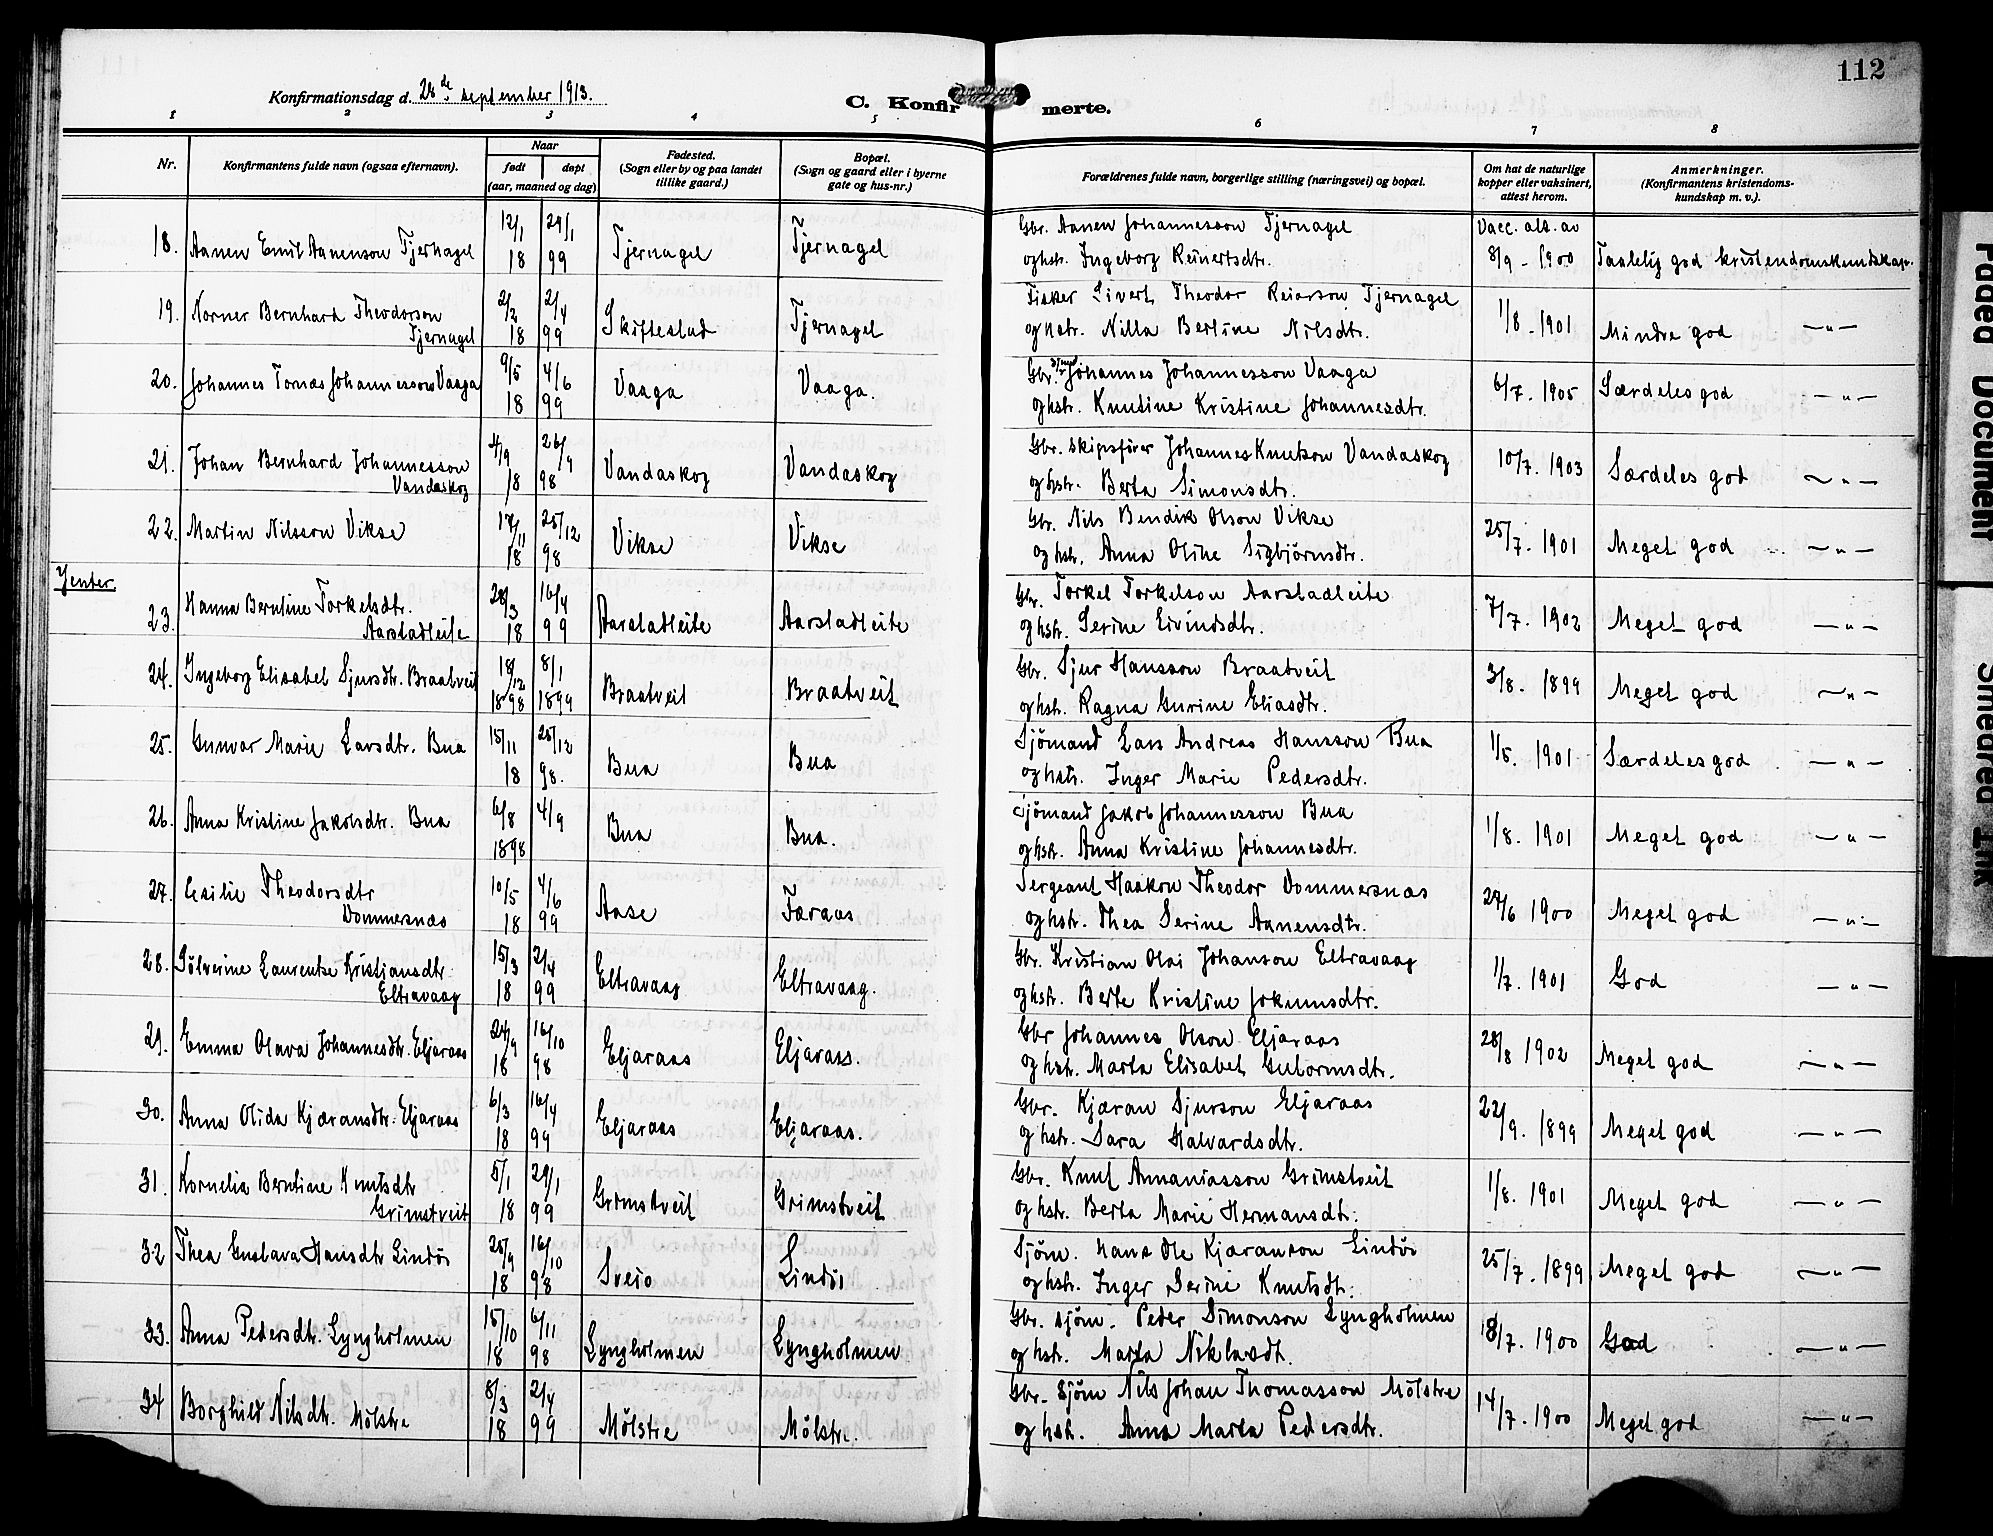 112
Konfirmationsdag d. 28de september 1913.
C. Konfirmerte.
1 2 3 4 5 6 7 8
Nr.
Konfirmantens fulde navn (ogsaa efternavn).
Naar
født døpt
(aar, maaned og dag)
Fødested.
(Sogn eller by og paa landet
tillike gaard.)
Bopæl.
(Sogn og gaard eller i byerne
gate og hus-nr.)
Forældrenes fulde navn, borgerlige stilling (næringsvei) og bopæl.
Om hat de naturlige
kopper eller vaksinert,
attest herom.
Anmerkninger.
(Konfirmantens kristendoms-
kundskap m. v.).
12/1 29/1 Gbr. Aanen Johannesson Tjernagel Vacc. att. av
18. Aanen Emil Aanenson Tjernagel 18 99 Tjernagel Tjernagel og hstr. Ingeborg Reinertsdtr. 8/9 - 1900 Taalelig god kristendomskundskap.
19. Norner Bernhard Theodorson 2/2 2/4 Fisker Sivert Theodor Reiarson Tjernagel
Tjernagel 18 99 Skiftestad Tjernagel og hstr. Nilla Bertine Nilsdtr. 1/8 - 1901 Mindre god — " —
20. Johannes Tornæs Johannesson Vaaga 9/5 4/6 Gbr. Johannes Johannesson Vaaga
18 99 Vaaga Vaaga. og hstr. Knutine Kristine Johannesdtr. 6/7. 1905 Særdeles god — " —
21. Johan Bernhard Johannesson 4/9 26/9 Gbr. skipsfører Johannes Knutson Vandaskog
Vandaskog 18 98 Vandaskog Vandaskog og hstr. Berta Simonsdtr. 10/7. 1903 Særdeles god — " —
22. Martin Nilsson Vikse 17/11 25/12 Gbr. Nils Bendik Olson Vikse
18 98 Vikse Vikse og hstr. Anna Oline Sigbjörnsdtr. 25/7. 1901 Meget god — " —
Jenter.
23. Hanna Berntine Torkelsdtr. 28/3 16/4 Gbr. Torkel Torkelson Aarstadleite
Aarstadleite 18 99 Aarstadleite Aarstadleite og hstr. Serine Eivindsdtr. 7/7. 1902 Meget god — " —
24. Ingeborg Elisabet Sjursdtr. Braatveit 18/12 8/1 Gbr. Sjur Hansson Braatveit
1898 1899 Braatveit Braatveit og hstr. Ragna Gurine Eliasdtr. 3/8. 1899 Meget god — " —
25. Gunvor Marie Larsdtr. Bua 15/11 25/12 Sjömand Lars Andreas Hansson Bua
18 98. Bua Bua og hstr. Inger Marie Pedersdtr. 1/5. 1901 Særdeles god — " —
26. Anna Kristine Jakobsdtr. Bua 6/8 4/9 Sjömand Jakob Johannesson Bua
1898 Bua Bua. og hstr. Anna Kristine Johannesdtr. 1/8. 1901 Meget god — " —
27. Cesilie Theodorsdtr 10/5 4/6 Sergeant Haakon Theodor Dommersnæs
Dommersnæs 18 99 Aase Færaas og hstr. Thea Serine Aanensdtr. 29/6 1900 Meget god — " —
28. Sölverine Laurentse Kristjansdtr. 15/3 2/4 Gbr. Kristian Olai Johanson Eltravaag
Eltravaag 18 99 Eltravaag Eltravaag. og hstr. Berte Kristine Jokumsdtr. 1/7. 1901 God — " —
29. Emma Olava Johannesdtr. Eljaraas 24/9 16/10 Gbr Johannes Olson Eljaraas
18 98 Eljaraas Eljaraas. og hstr. Marta Elisabet Gutormsdtr. 28/8 1902 Meget god — " —
30. Anna Olida Kjæransdtr. Eljaraas 6/3 16/4 Gbr. Kjæran Sjurson Eljaraas
18 99 Eljaraas Eljaraas. og hstr. Sara Halvardsdtr. 22/9. 1899 Meget god — " —
31. Kornelia Berntine Knutsdtr 5/1 29/1 Gbr. Knut Annaniasson Grimstveit
Grimstveit 18 99 Grimstveit Grimstveit og hstr. Berta Marie Hermansdtr. 1/8. 1901 Meget god — " —
32 Thea Gustava Hansdtr Lindöi 25/9 16/10 Sjöm. Hans Ole Kjæranson Lindöi
18 98 Sveio Lindöi og hstr. Inger Serine Knutsdtr. 25/7. 1899 Meget god — " —
33. Anna Pedersdtr. Lyngholmen 15/10 6/11 Gbr. sjöm. Peder Simonson Lyngholmen
18 98 Lyngholmen Lyngholmen og hstr. Marta Niklasdt. 18/7. 1900 God — " —
34 Borghild Nilsdtr. Mölstre 8/3 2/4 Gbr. sjöm Nils Johan Thomasson Mölstre
18 99 Mölstre Mölstre. og hstr. Anna Marta Pedersdtr. 14/7. 1900 Meget god — " —
Faded Document
Smeared Ink